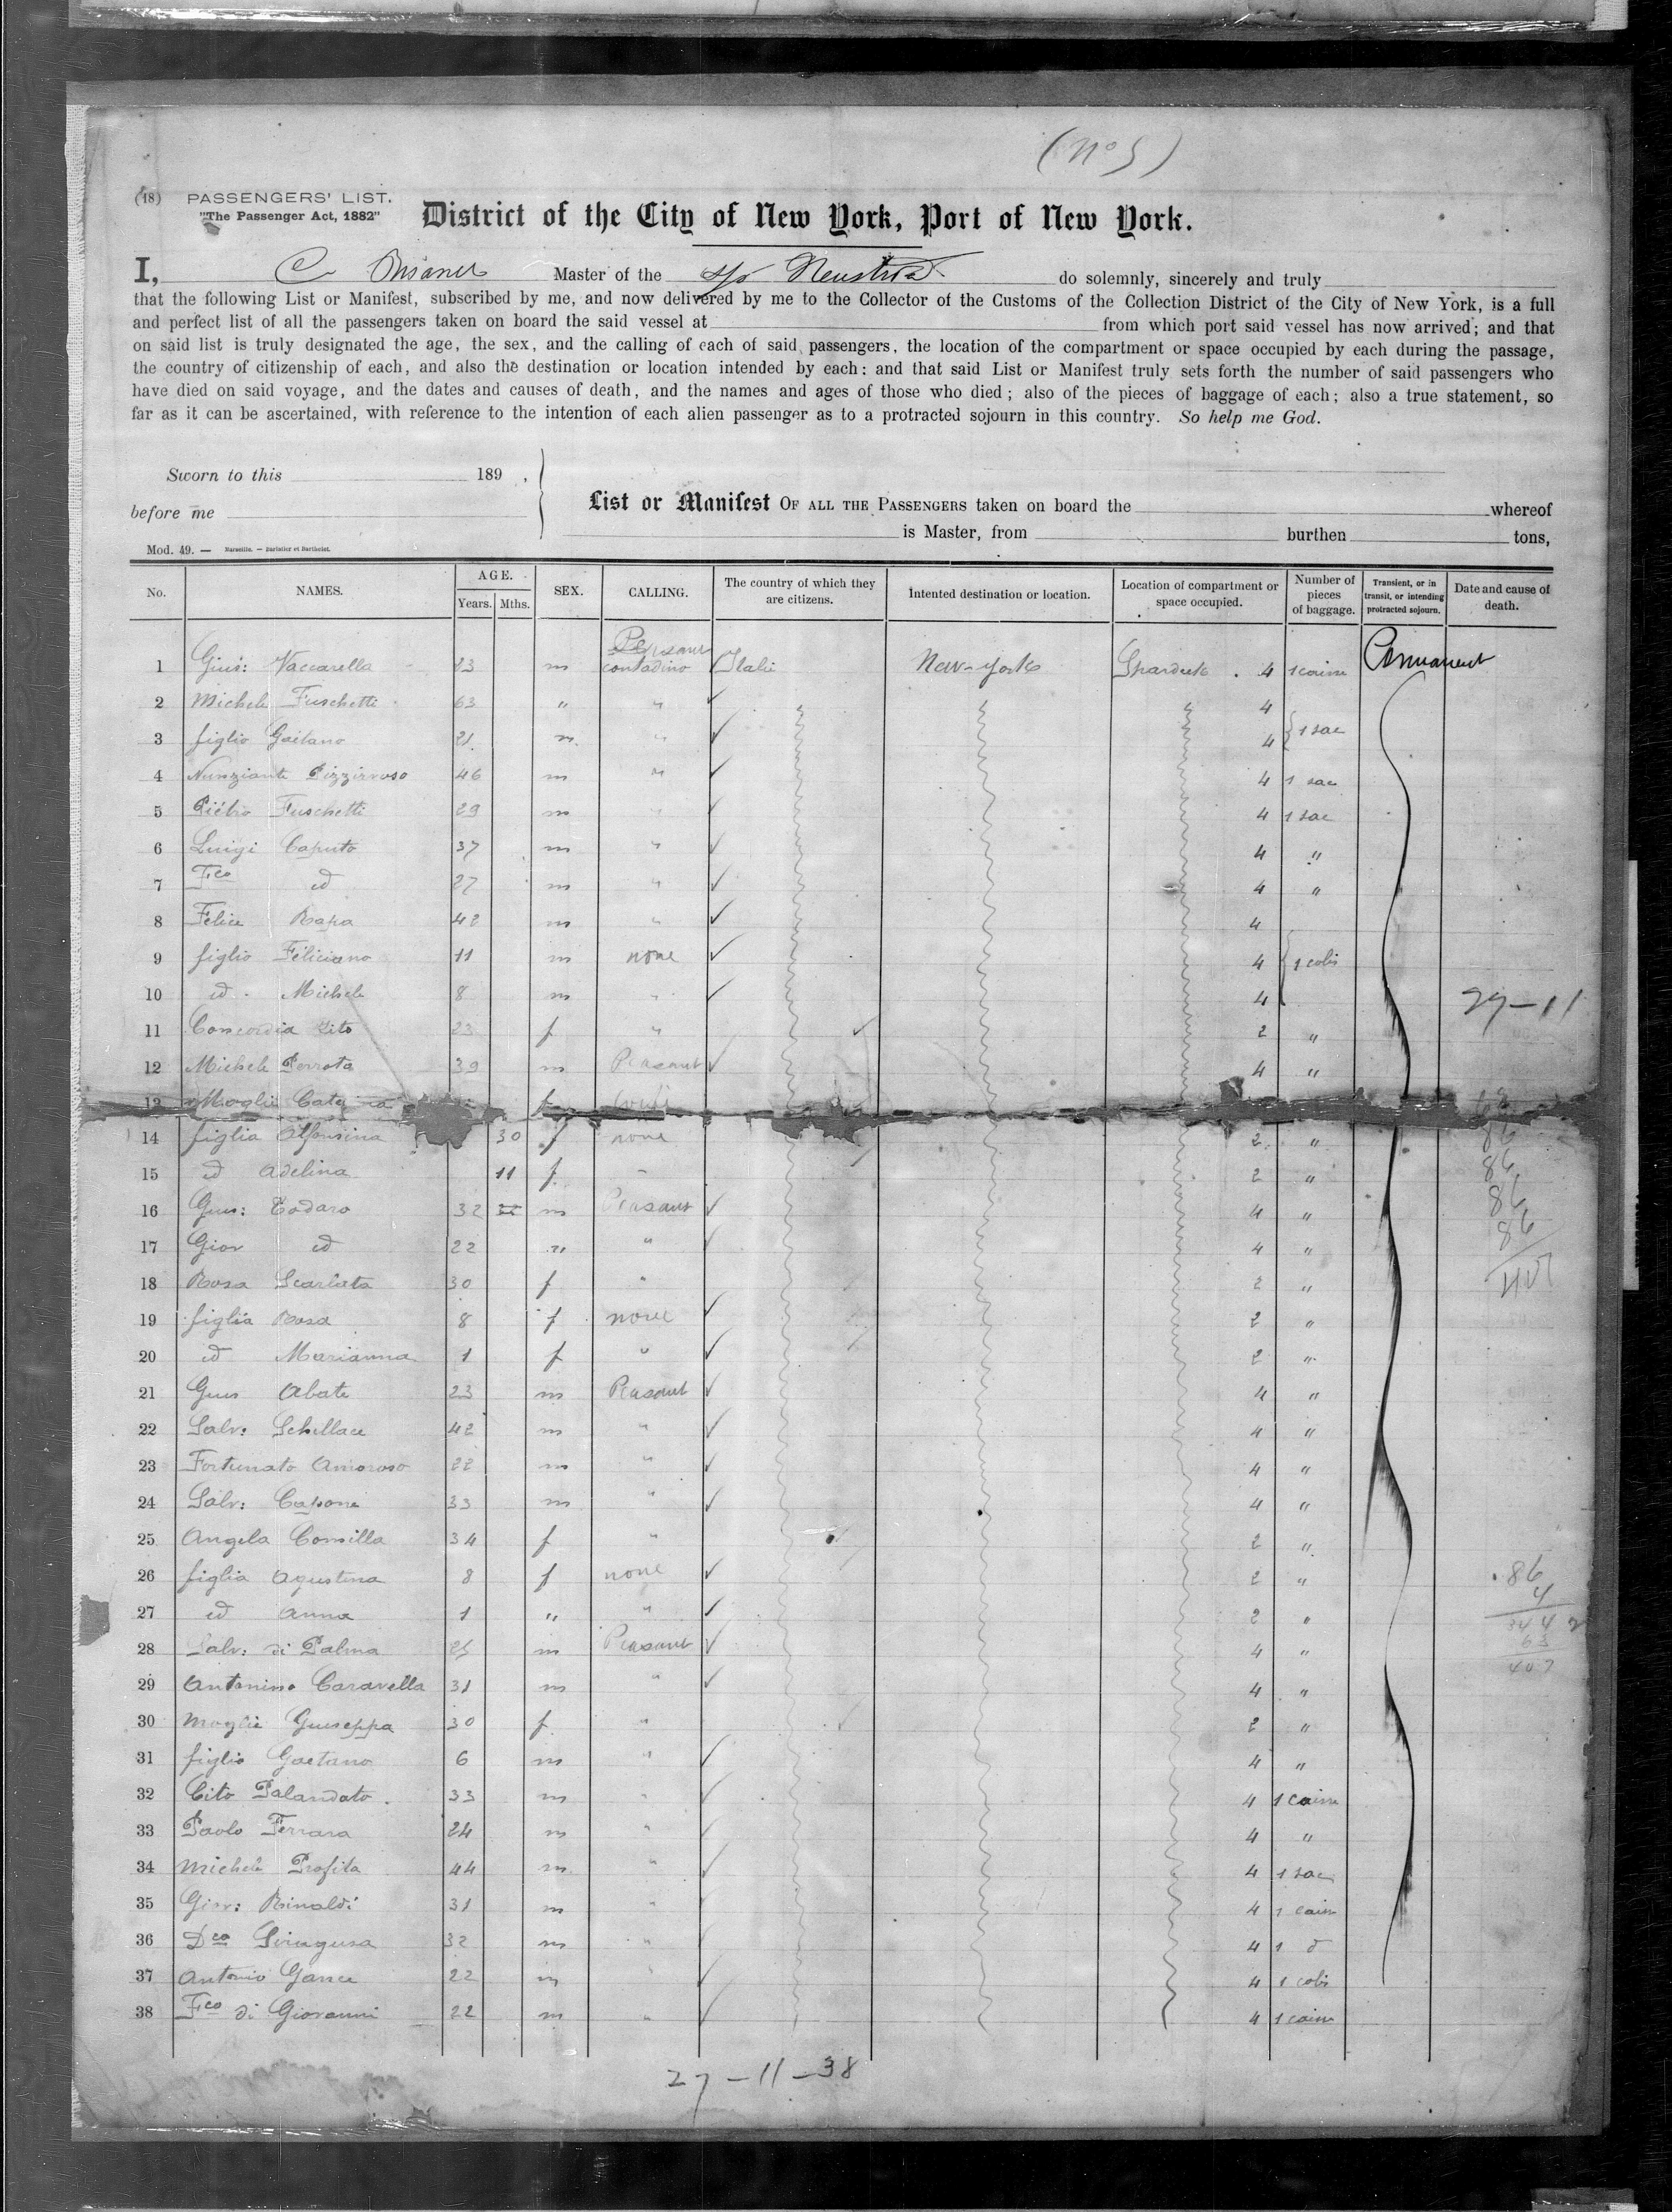 (No 5)
(18) PASSENGERS' LIST.
"The Passenger Act, 1882"
District of the City of New York, Port of New York.
I, C Master of the s/s Neustria do solemnly, sincerely and truly
that the following List or Manifest, subscribed by me, and now delivered by me to the Collector of the Customs of the Collection District of the City of New York, is a full
and perfect list of all the passengers taken on board the said vessel at from which port said vessel has now arrived; and that
on said list is truly designated the age, the sex, and the calling of each of said passengers, the location of the compartment or space occupied by each during the passage,
the country of citizenship of each, and also the destination or location intended by each: and that said List or Manifest truly sets forth the number of said passengers who
have died on said voyage, and the dates and causes of death, and the names and ages of those who died; also of the pieces of baggage of each; also a true statement, so
far as it can be ascertained, with reference to the intention of each alien passenger as to a protracted sojourn in this country. So help me God.
Sworn to this 189 ,
before me
List or Manifest OF ALL THE PASSENGERS taken on board the whereof
is Master, from burthen tons,
Mod. 49. — Marseille. — Barlatier et Barthelet.
No. NAMES. AGE. Years. Mths. SEX. CALLING. The country of which they are citizens. Intented destination or location. Location of compartment or space occupied. Number of pieces of baggage. Transient, or in transit, or intending protracted sojourn. Date and cause of death.
Peasant
1 Gius: Vaccarella 13 m contadino Italie New-york 4 1 caisse Permanent
2 Michele Fuschetti 63 " " 4
3 figlio Gaetano 21 m " 4 1 sac
4 Nunziante Pizzirruso 46 m " 4 1 sac
5 Piétro Fuschetti 29 m " 4 1 sac
6 Luigi Caputo 37 m " 4 "
7 Fco id 27 m " 4 "
8 Felice Rapa 42 m " 4
9 figlio Féliciano 11 m none 4 1 colis
10 id Michele 8 m " 4 27-11
11 Concordia Zito 23 f " 2 "
12 Michele Perrota 39 m Peasant 4 "
13 Moglie Caterina f
14 figlia Alfonsina 30 f none 2 "
15 id Adelina 11 f " 2 " 86
16 Gius: Todaro 32 m Peasant 4 " 86
17 Giov id 22 m " 4 " 86
18 Rosa Scarlata 30 f " 2 "
19 figlia Rosa 8 f none 2 "
20 id Marianna 1 f " 2 "
21 Gius Abate 23 m Peasant 4 "
22 Salv: Schillace 42 m " 4 "
23 Fortunato Amoroso 22 m " 4 "
24 Salv: Capone 33 m " 4 "
25 Angela Comilla 34 f " 2 "
26 figlia Agustina 8 f none 2 " 86
4
27 id Anna 1 " " 2 " 344
28 Salv: di Palma 25 m Peasant 4 " 63
407
29 Antonino Caravella 31 m " 4 "
30 Moglie Giuseppa 30 f " 2 "
31 figlio Gaetano 6 m " 4 "
32 Cito Palandato 33 m " 4 1 caisse
33 Paolo Ferrara 24 m " 4 "
34 Michele Profita 44 m " 4 1 sac
35 Giov: Rinaldi 31 m " 4 1 caisse
36 Dco Siragusa 32 m " 4 1 d
37 Antonio Gance 22 m " 4 1 colis
38 Fco di Giovanni 22 m " 4 1 caisse
27-11-38